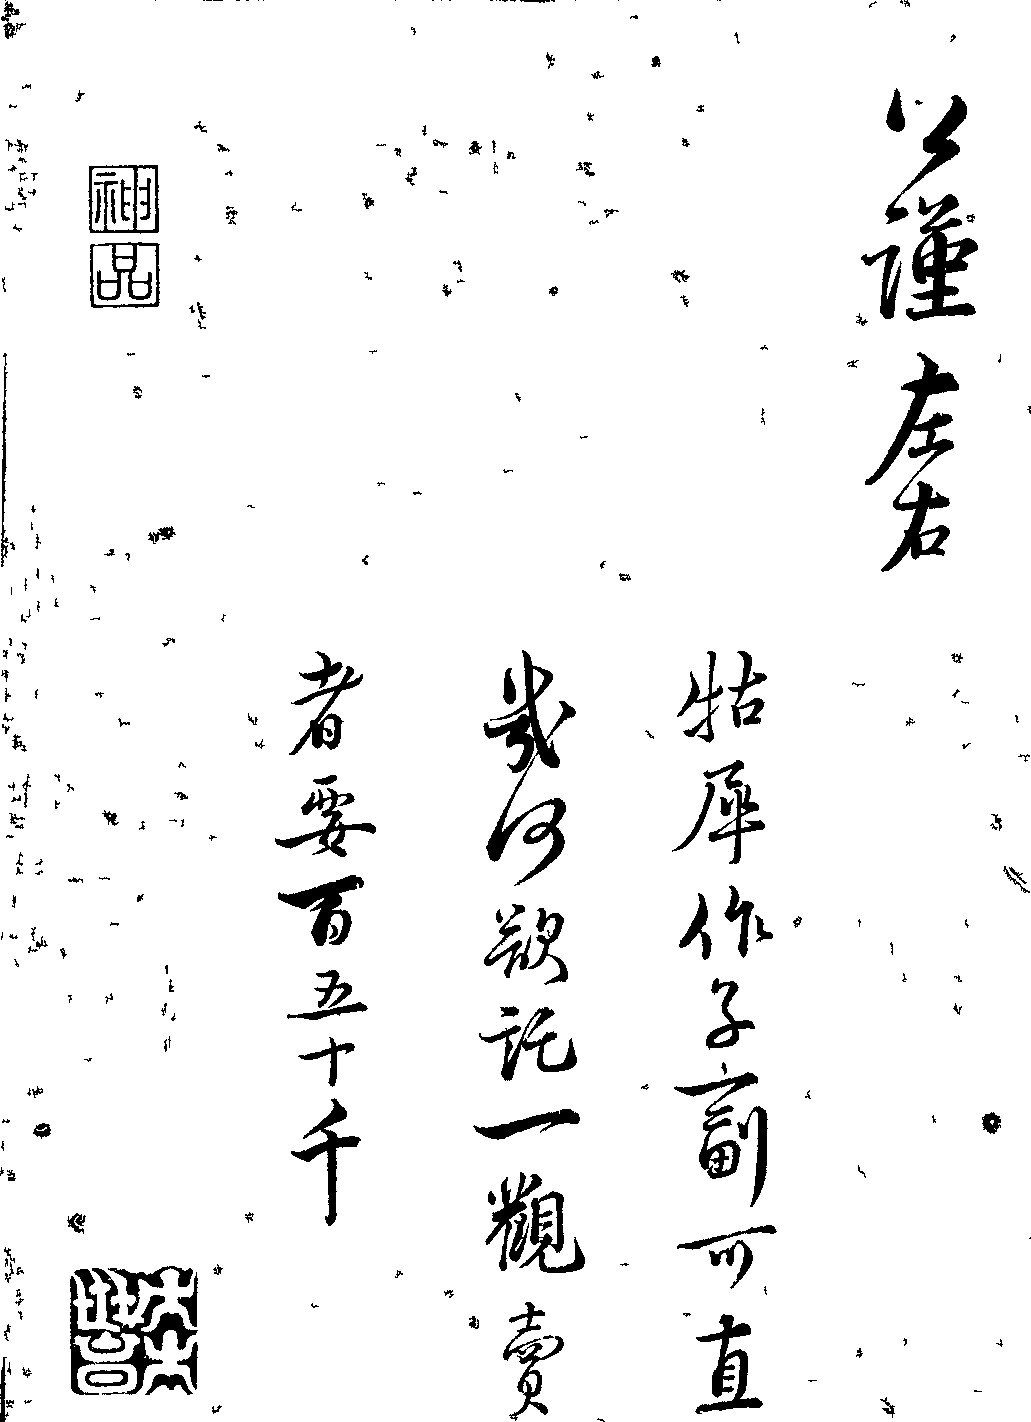 公謹左右
牯犀作子一副可直
幾何欲託一觀賣
者要百五十千
神品